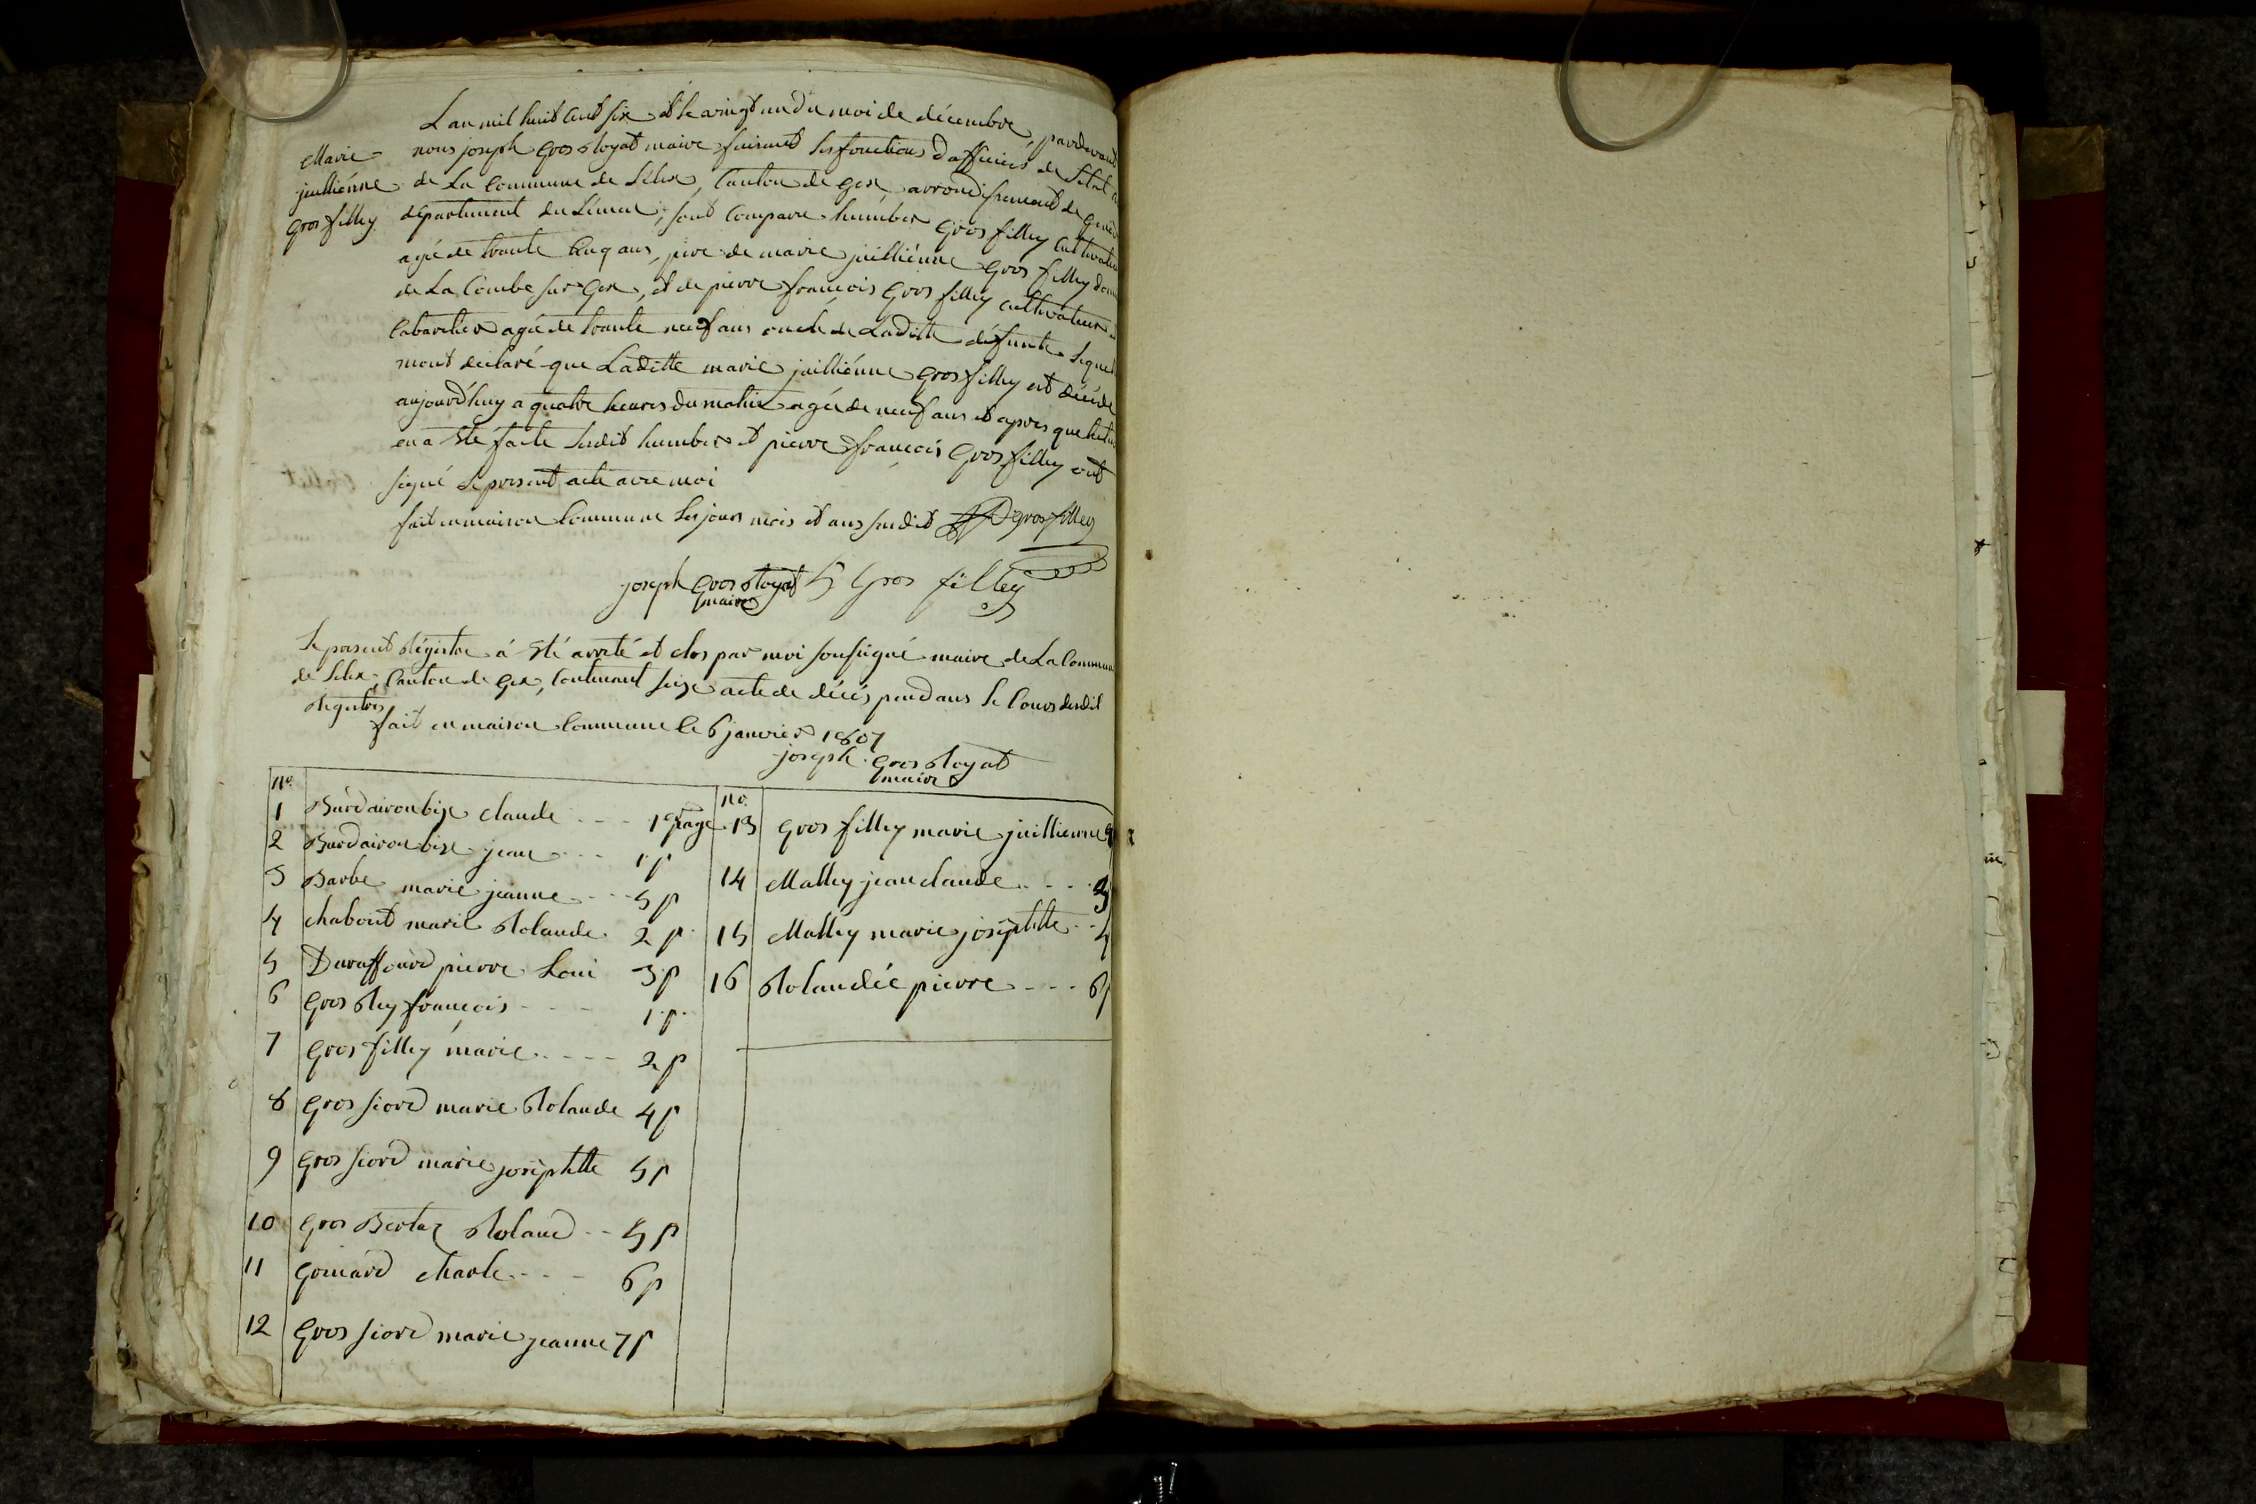 L an mil huit cent six et le vingt un du moi de décembre, pardevant
nous joseph gros Royat maire faisant les fonctions d'officiers de L'etat
de La Commune de Lélex, Canton de gex, arrondissement de
département du Léman, sont Comparu humber gros filley Cultivateur
agée de trante Cinq ans, père de marie juilliénne gros filley
de La Combe sur Gex, et de pierre françois gros filley cultivateur
Cabaretier agée de trante neuf ans oncle de Laditte défunte lequel
mont declaré que Laditte marie juilliénne gros filley est décéde
aujourd'huy a quatre heures du matin agée de neuf ans et apres que
en a été faite ledit humber et pierre françois gros filley ont
signé le present acte avec moi
fait en maison Commune les jours mois et ans susdit gros filley
joseph gros Royat h gros filley
maire
Marie
juilliénne
gros filley
Le present Régistre á été arreté et clos par moi sousigné maire de La Commune
de Lélex, Canton de gex, Contenant seize acte de décès pendans le Cours dudit
Régistres
fait en maison Commune le 6 janvier 1807
joseph gros Royat
maire
no.
1 Burdaironbix claude 1 page
2 Burdaironbix jean 1 p
3 Barbe marie jeanne 5 p
4 chabout marie Rolande 2 p
5 Duraffourd pierre Loui 3 p
6 gros Rey françois 1 p
7 gros filley marie 2 p
8 gros siord marie Rolande 4 p
9 gros siord marie josephtte 5 p
10 gros Bertaz Roland 5 p
11 goinard charle 6 p
12 gros siord marie jeanne 7 p
no.
13 gros filley marie juillienne
14 Malley jean claude 3
15 Malley marie josephtte 4
16 Rolandée pierre 6